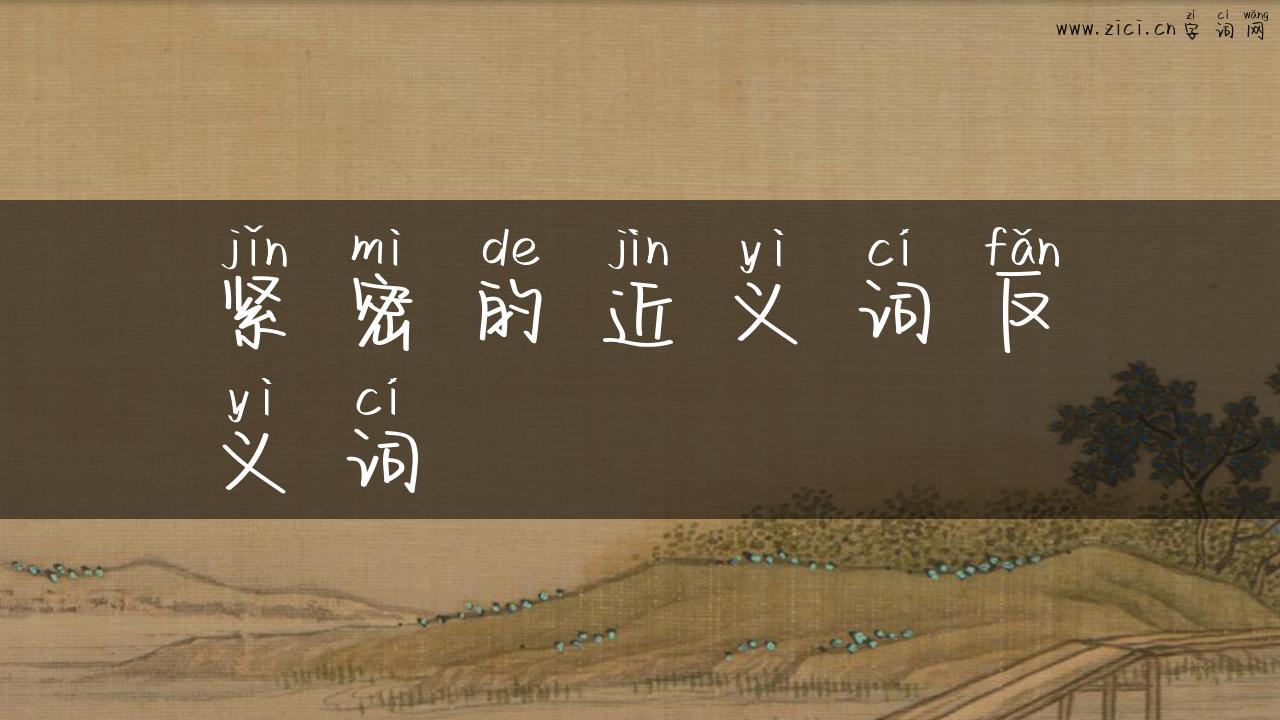 zì cí wǎng
www.zici.cn 字词网
jǐn mì de jìn yì cí fǎn
紧密的近义词反
yì cí
义词